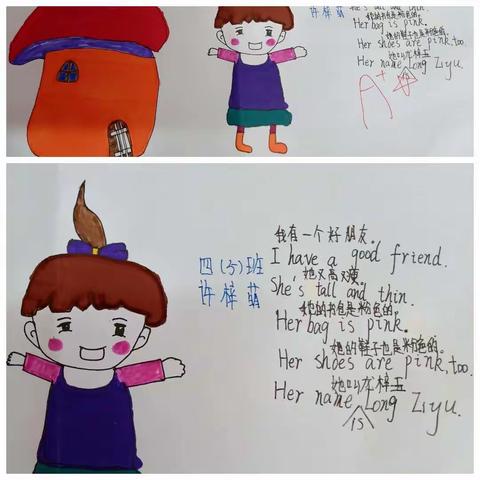 许梓萌
She's tall and thin.
她的书包是粉色的。
Her bag is pink.
她的鞋子也是粉色的。
Her shoes are pink, too.
她叫龙梓玉
Her name Long Ziyu.
A+
四(5)班
许梓萌
我有一个好朋友。
I have a good friend.
她又高又瘦。
She's tall and thin.
她的书包是粉色的。
Her bag is pink.
她的鞋子也是粉色的。
Her shoes are pink, too.
她叫龙梓玉
Her name Long Ziyu.
is